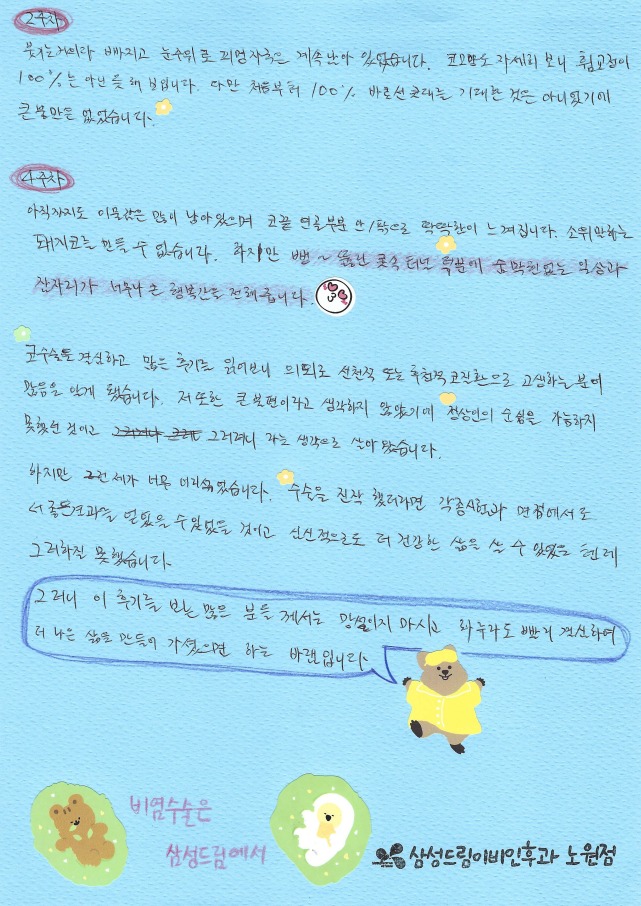 2주차
붓기는 거의다 빠지고 눈주위로 꿰멘자국은 계속 남아 있었습니다. 코모양도 자세히 보니 휨교정이
100%는 아닌듯 해 보입니다. 다만 처음부터 100% 바로선 콧대를 기대한 것은 아니었기에
큰 불만은 없었습니다.
4주차
아직까지도 이물감은 많이 남아있으며 코끝 연골부분 안/팎으로 딱딱함이 느껴집니다. 소위말하는
돼지코를 만들 수 없습니다. 하지만 뻥~ 뚫린 콧속 터널 덕분에 숨막힘없는 일상과
잠자리가 너무나 큰 행복감을 전해줍니다.
코수술을 결심하고 많은 후기를 읽어보니 의외로 선천적 또는 후천적 코질환으로 고생하는 분이
많음을 알게 됐습니다. 저 또한 큰 불편이라고 생각하지 않았기에 정상인의 숨쉼을 가늠하지
못했던 것이고 그러려니 라는 생각으로 살아 왔습니다.
하지만 그런 제가 너무 미련했었습니다. 수술을 진작 했더라면 각종시험과 면접에서도
더 좋은결과를 얻었을 수 있었을 것이고 신체적으로도 더 건강한 삶을 살 수 있었을 텐데
그러하질 못했습니다.
그러니 이 후기를 보는 많은 분들 께서는 망설이지 마시고 하루라도 빨리 결심하여
더 나은 삶을 만들어 가셨으면 하는 바램입니다.
비염수술은
삼성드림에서
삼성드림이비인후과 노원점